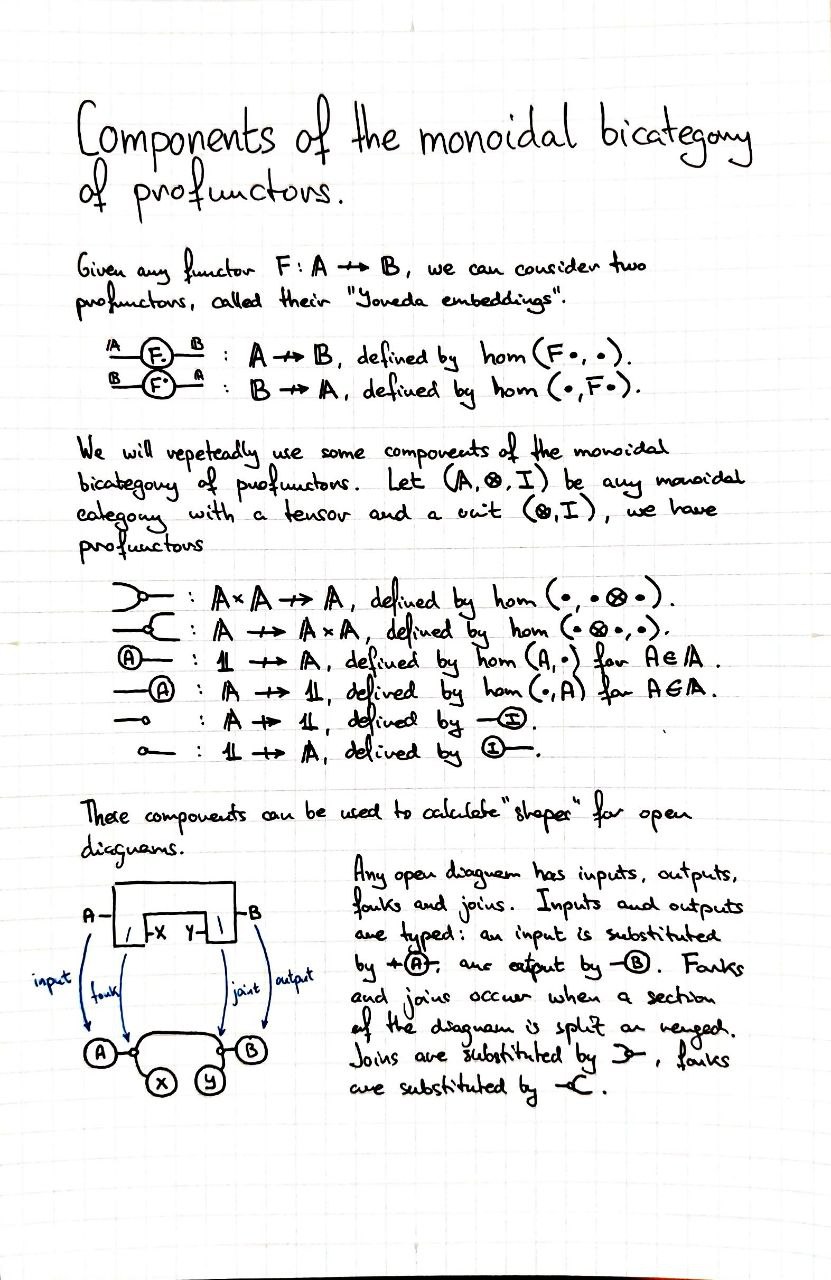 Components of the monoidal bicategory
of profunctors.
Given any functor F: 𝔸 ⇸ 𝔹, we can consider two
profunctors, called their "Yoneda embeddings".
𝔸 F• 𝔹 : 𝔸 ⇸ 𝔹, defined by hom (F•, •).
𝔹 F• 𝔸 : 𝔹 ⇸ 𝔸, defined by hom (•, F•).
We will repeteadly use some components of the monoidal
bicategory of profunctors. Let (𝔸, ⊗, I) be any monoidal
category with a tensor and a unit (⊗, I), we have
profunctors
: 𝔸 × 𝔸 ⇸ 𝔸, defined by hom (•, • ⊗ •).
: 𝔸 ⇸ 𝔸 × 𝔸, defined by hom (• ⊗ •, •).
Ⓐ— : 𝟙 ⇸ 𝔸, defined by hom (A, •) for A ∈ 𝔸.
—Ⓐ : 𝔸 ⇸ 𝟙, defined by hom (•, A) for A ∈ 𝔸.
—o : 𝔸 ⇸ 𝟙, defined by —Ⓘ.
o— : 𝟙 ⇸ 𝔸, defined by Ⓘ—.
These components can be used to calculate "shapes" for open
diagrams.
A B
X Y
input fork joint output
A B
X Y
Any open diagram has inputs, outputs,
forks and joins. Inputs and outputs
are typed: an input is substituted
by Ⓐ-, an output by —Ⓑ. Forks
and joins occur when a section
of the diagram is split or merged.
Joins are substituted by , forks
are substituted by .